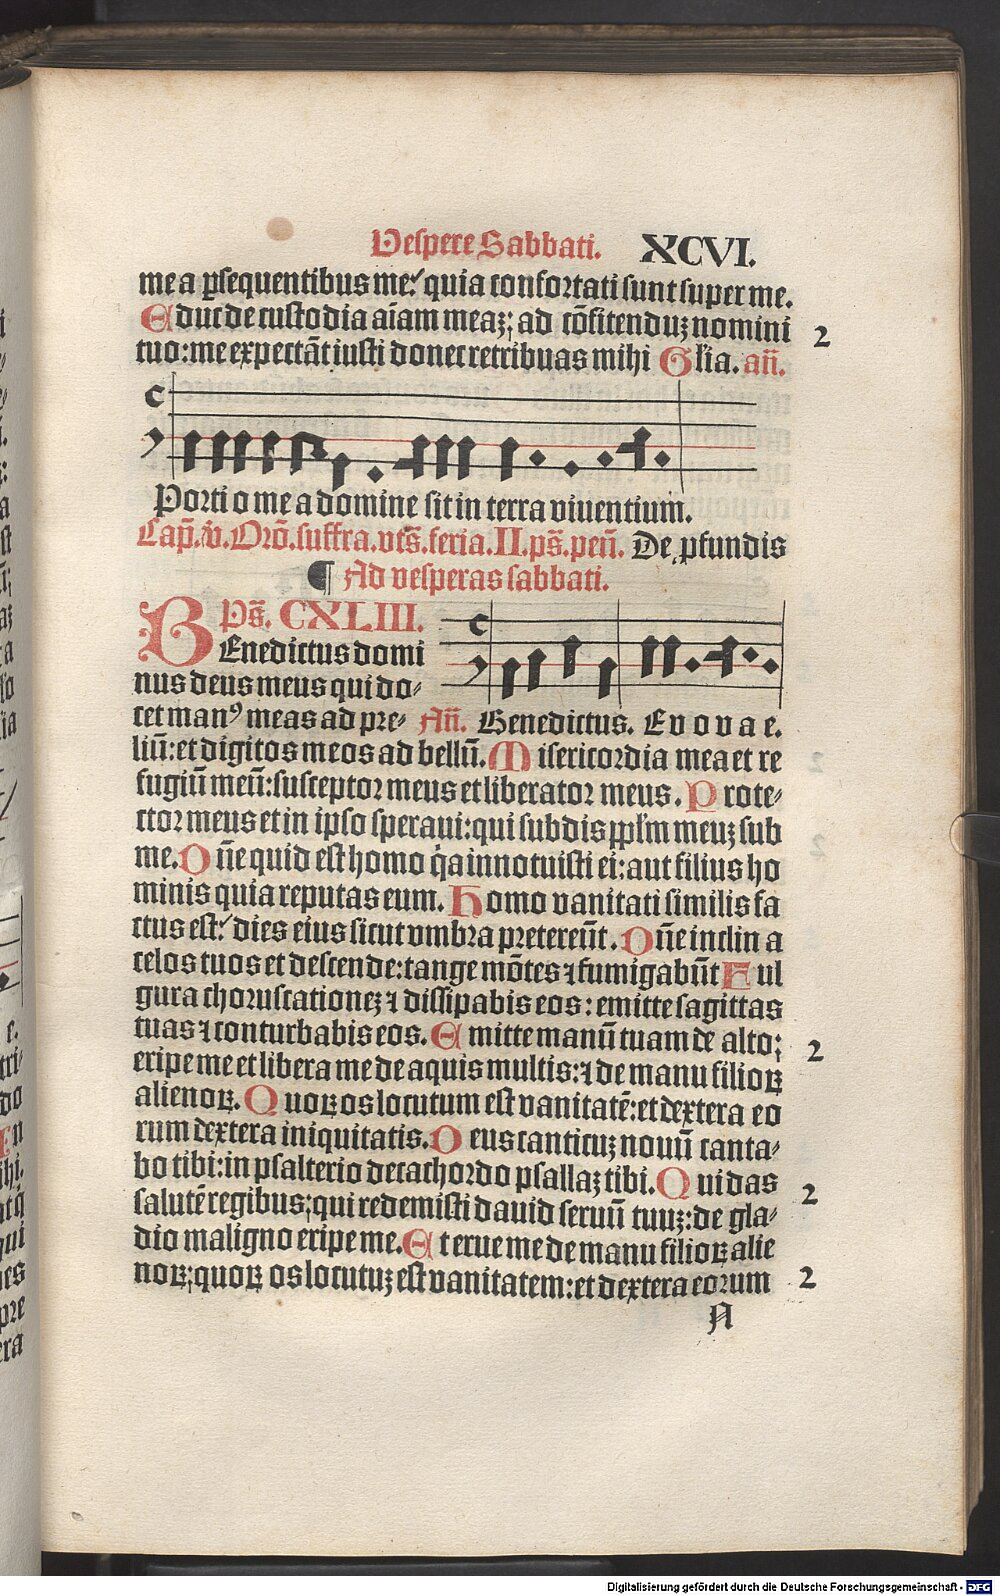 Vespere Sabbati. XCVI.
me a ꝑsequentibus me: quia confortati sunt super me.
Educ de custodia aīam meaꝫ: ad cōfitenduꝫ nomini 2
tuo: me expectāt iusti donec retribuas mihi Glīa. an̄.
Portio mea domine sit in terra viuentium.
Cap̄. v̄. Orō. suffra. vts̄. feria. II. ps̄. pen̄. De ꝓfundis
¶ Ad vesperas sabbati.
Ps̄. CXLIII.
BEnedictus domi
nus deus meus qui do-
cet manꝰ meas ad pre- An̄. Benedictus. Evovae.
liū: et digitos meos ad bellū. Misericordia mea et re
fugiū meū: susceptor meus et liberator meus. Prote-
ctor meus et in ipso speraui: qui subdis ppl̄m meuꝫ sub
me. Dn̄e quid est homo q̇a innotuisti ei: aut filius ho
minis quia reputas eum. Homo vanitati similis fa
ctus est: dies eius sicut vmbra pretereūt. Dn̄e inclina
celos tuos et descende: tange mōtes ⁊ fumigabūt Ful
gura choruscationeꝫ ⁊ dissipabis eos: emitte sagittas
tuas ⁊ conturbabis eos. Emitte manū tuam de alto: 2
eripe me et libera me de aquis multis: ⁊ de manu filioꝝ
alienoꝝ. Quoꝝ os locutum est vanitatē: et dextera eo
rum dextera iniquitatis. Deus canticuꝫ nouū canta-
bo tibi: in psalterio decachordo psallaꝫ tibi. Qui das 2
salutē regibus: qui redemisti dauid seruū tuuꝫ: de gla-
dio maligno eripe me. Et erue me de manu filioꝝ alie
noꝝ: quoꝝ os locutuꝫ est vanitatem: et dextera eorum 2
A
Digitalisierung gefördert durch die Deutsche Forschungsgemeinschaft - DFG